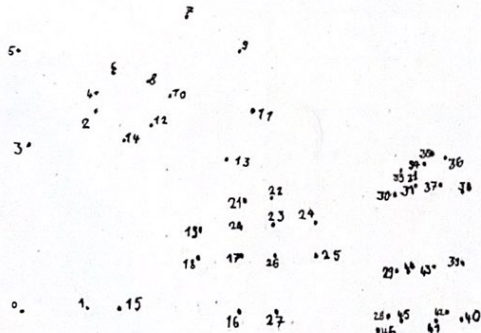 7
5 9
6 8
4 10
2 12 11
14
3 13
35 36
34
33
30 31 37 38
22
21
23 24
19 20
18 17 26 25
29 43 39
0 1 15
16 27
28 45 42 40
46 41